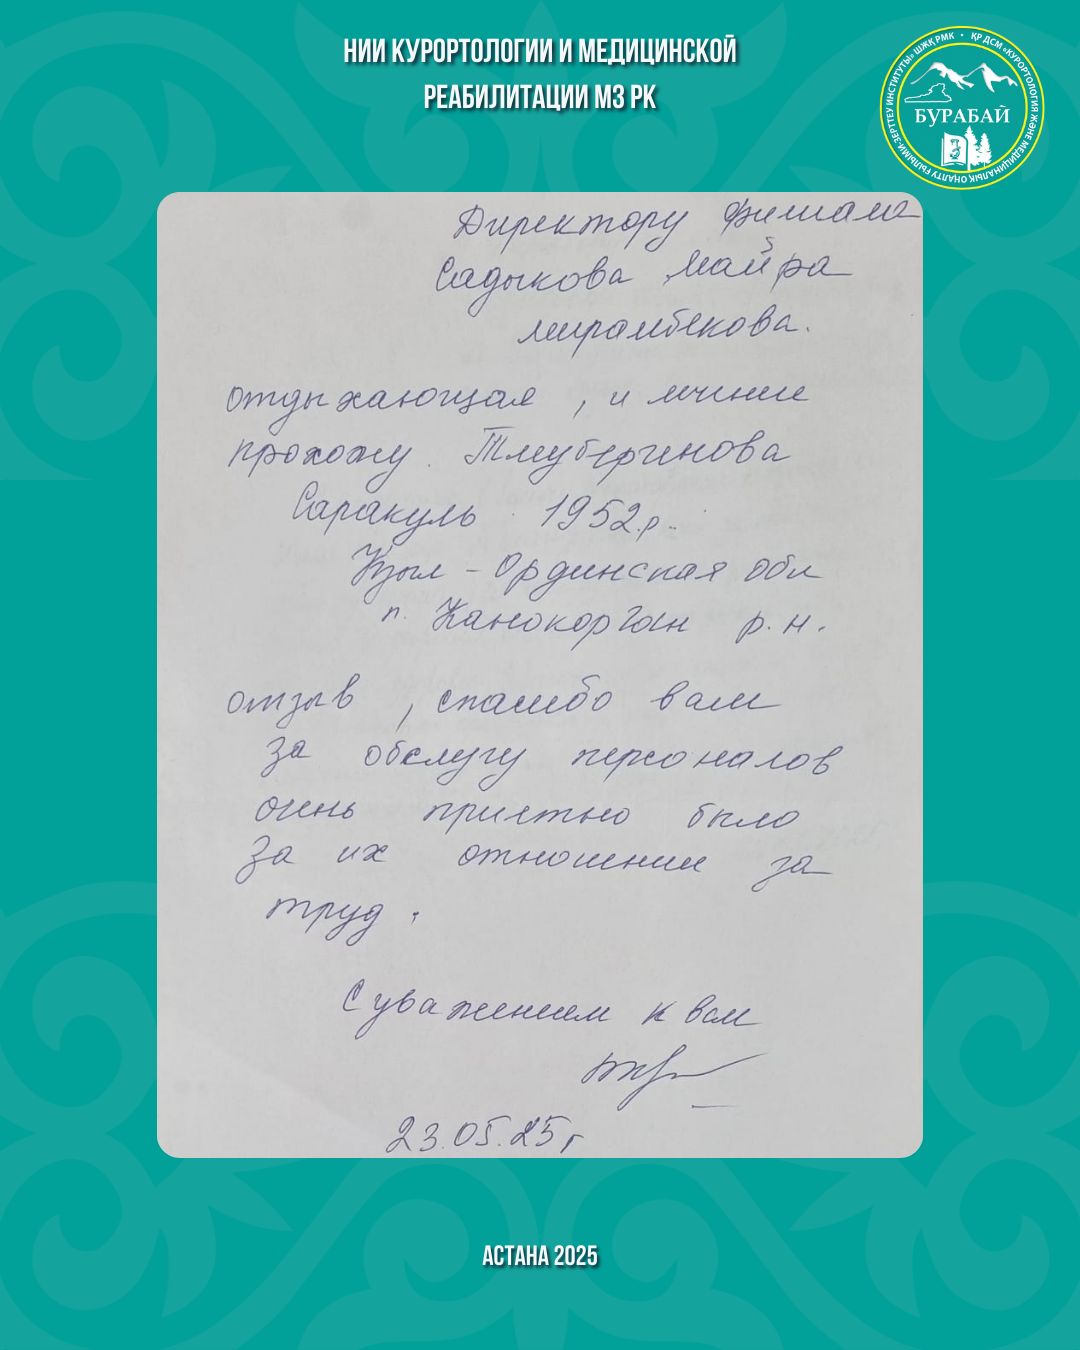 НИИ КУРОРТОЛОГИИ И МЕДИЦИНСКОЙ
РЕАБИЛИТАЦИИ МЗ РК
ҚР ДСМ «КУРОРТОЛОГИЯ ЖӘНЕ МЕДИЦИНАЛЫҚ ОҢАЛТУ ҒЫЛЫМИ-ЗЕРТТЕУ ИНСТИТУТЫ» ШЖҚ РМК
БУРАБАЙ
Директору филиала
Садыкова Майра
мирамбекова.
отдыхающая, и лечение
прохожу. Тлеубергинова
Саракуль 1952г.
Кзыл-Ординская обл
п. Жанокорган р.н.
отзыв, спасибо вам
за обслугу персоналов
очень приятно было
За их отношении за
труд.
С уважением к вам
23.05.25г
АСТАНА 2025